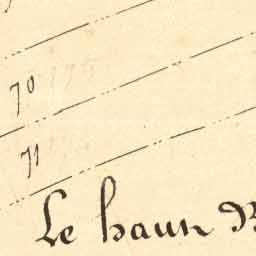 70
71
Le haun